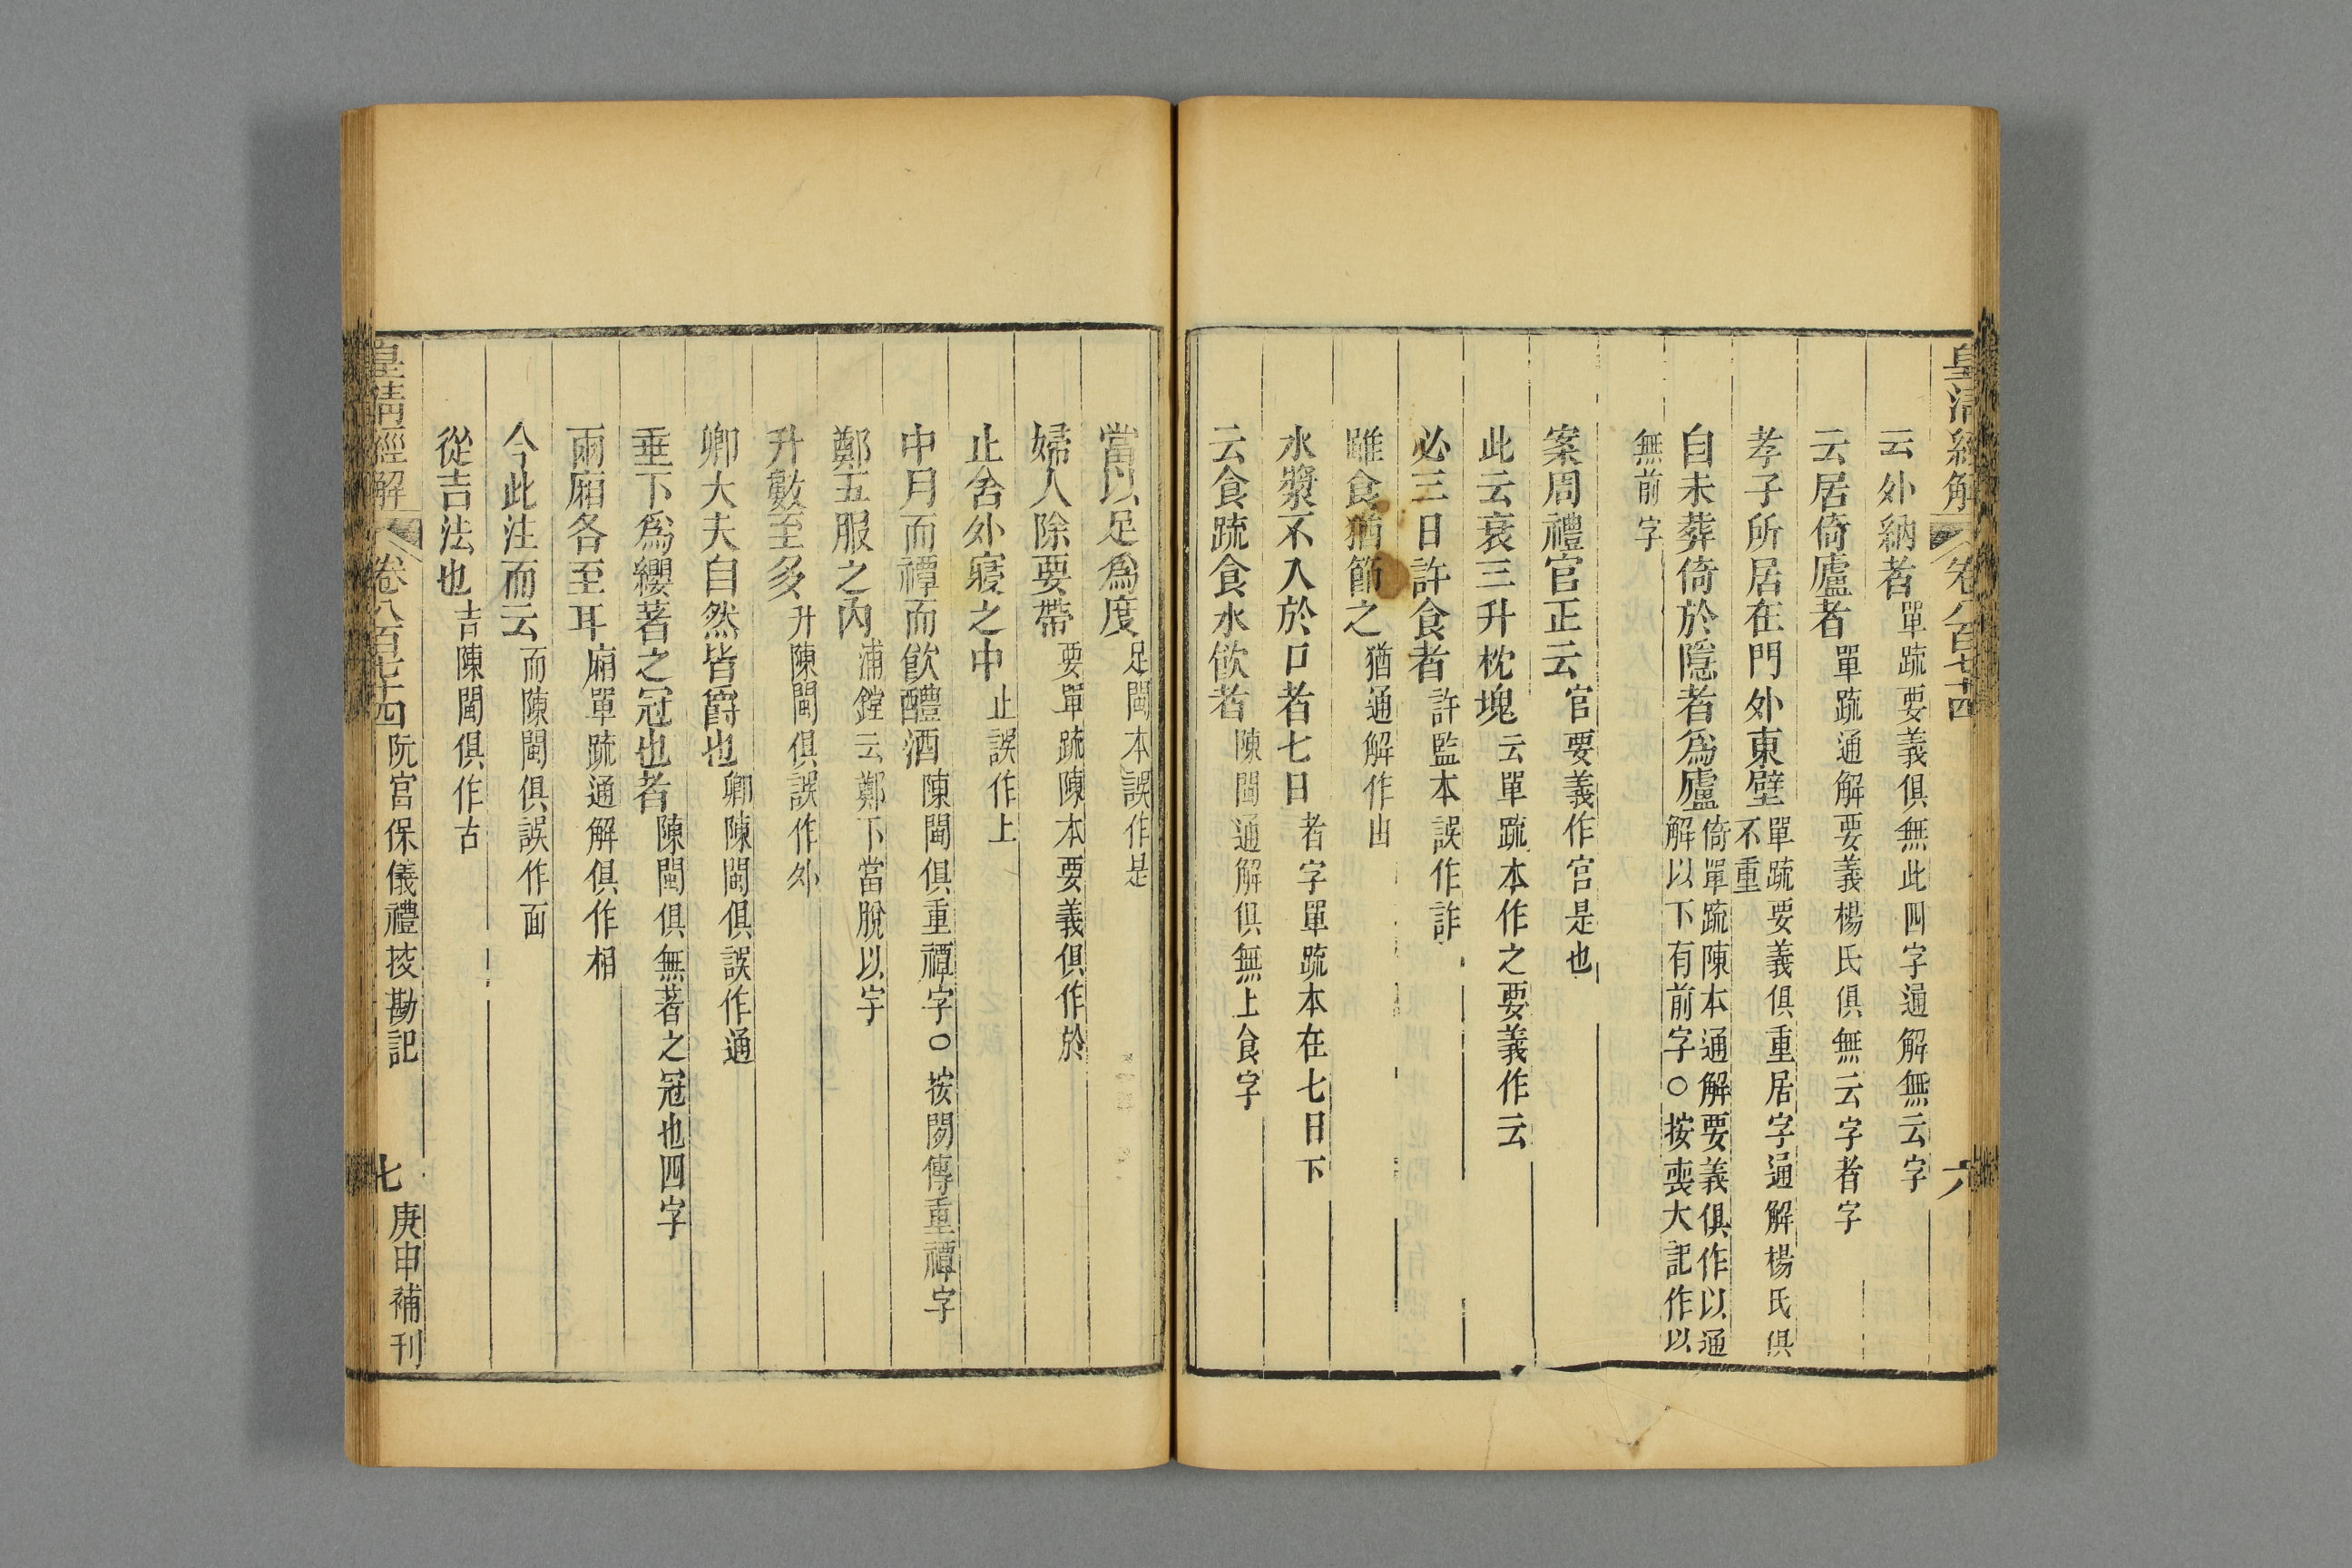 皇清經解 卷八百七十四 六
云外納者單疏要義俱無此四字通解無云字
云居倚廬者單疏通解要義楊氏俱無云字者字
孝子所居在門外東壁單疏要義俱重居字通解楊氏俱不重
自未葬倚於隱者爲廬倚單疏陳本通解要義俱作以通解以下有前字○按喪大記作以
無前字
案周禮官正云官要義作宮是也
此云衰三升枕塊云單疏本作之要義作云
必三日許食者許監本誤作詐
雖食猶節之猶通解作由
水漿不入於口者七日者字單疏本在七日下
云食疏食水飲者陳閩通解俱無上食字
當以足爲度足閩本誤作是
婦人除要帶要單疏陳本要義俱作於
止舍外寢之中止誤作上
中月而禫而飲醴酒陳閩俱重禫字○按閒傳重禫字
鄭五服之內浦鏜云鄭下當脫以字
升數至多升陳閩俱誤作外
卿大夫自然皆爵也卿陳閩俱誤作通
垂下爲纓著之冠也者陳閩俱無著之冠也四字
兩廂各至耳廂單疏通解俱作相
今此注而云而陳閩俱誤作面
從吉法也吉陳閩俱作古
皇清經解 卷八百七十四 阮宮保儀禮挍勘記 七 庚申補刊